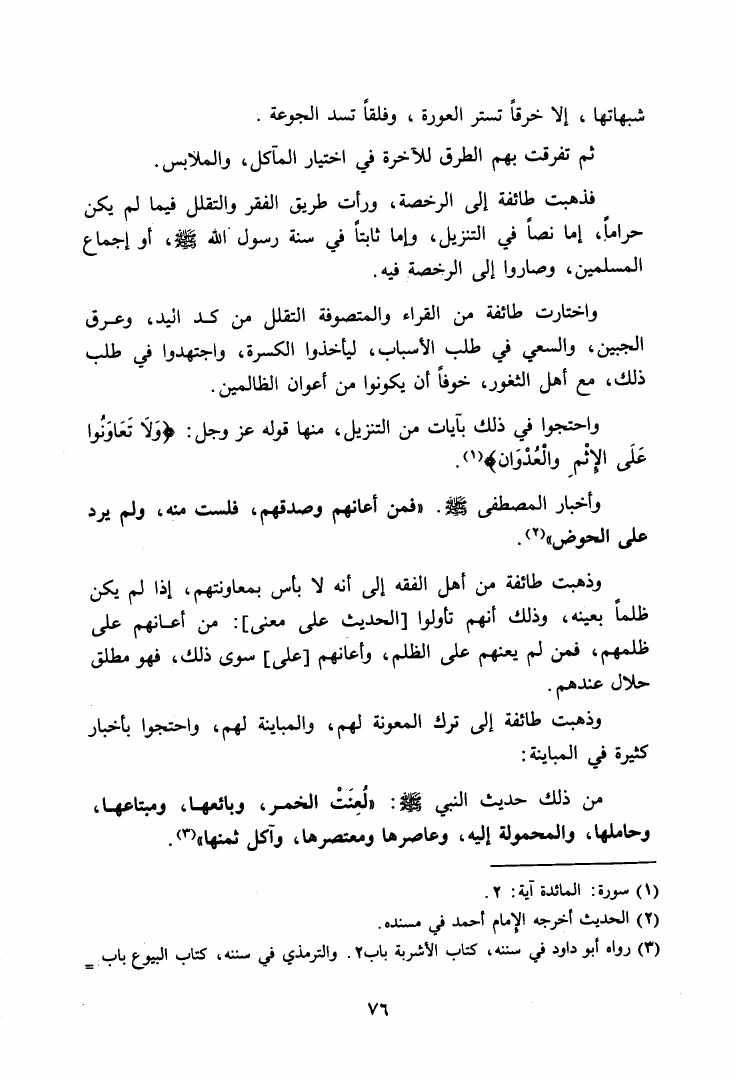 شبهاتها ، إلا خرقاً تستر العورة ، وفلقاً تسد الجوعة .
ثم تفرقت بهم الطرق للآخرة في اختيار المآكل، والملابس.
فذهبت طائفة إلى الرخصة، ورأت طريق الفقر والتقلل فيما لم يكن
حراماً، إما نصاً في التنزيل، وإما ثابتاً في سنة رسول الله ﷺ، أو إجماع
المسلمين، وصاروا إلى الرخصة فيه.
واختارت طائفة من القراء والمتصوفة التقلل من كـد اليد، وعـرق
الجبين، والسعي في طلب الأسباب، ليأخذوا الكسرة، واجتهدوا في طلب
ذلك، مع أهل الثغور، خوفاً أن يكونوا من أعوان الظالمين.
واحتجوا في ذلك بآيات من التنزيل، منها قوله عز وجل: ﴿وَلَا تَعَاوَنُوا
عَلَى الإِثْمِ والْعُدْوَان﴾(١).
وأخبار المصطفى ﷺ. «فمن أعانهم وصدقهم، فلست منه، ولم يرد
على الحوض»(٢).
وذهبت طائفة من أهل الفقه إلى أنه لا بأس بمعاونتهم، إذا لم يكن
ظلماً بعينه، وذلك أنهم تأولوا [الحديث على معنى]: من أعـانهم على
ظلمهم، فمن لم يعنهم على الظلم، وأعانهم [على] سوى ذلك، فهو مطلق
حلال عندهم.
وذهبت طائفة إلى ترك المعونة لهم، والمباينة لهم، واحتجوا بأخبار
كثيرة في المباينة:
من ذلك حديث النبي ﷺ: «لُعِنَتْ الخمـر، وبائعهـا، ومبتاعهـا،
وحاملها، والمحمولة إليه، وعاصرها ومعتصرها، وآكل ثمنها»(٣).
(١) سورة: المائدة آية: ٢.
(٢) الحديث أخرجه الإمام أحمد في مسنده.
(٣) رواه أبو داود في سننه، كتاب الأشربة باب٢. والترمذي في سننه، كتاب البيوع باب =
٧٦